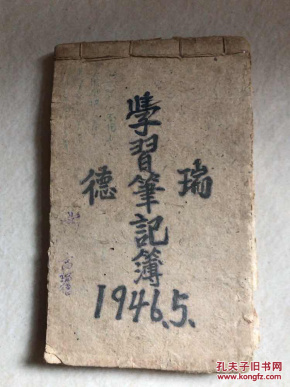 學習筆記簿
瑞德
1946.5.
孔夫子旧书网
www.kongfz.com